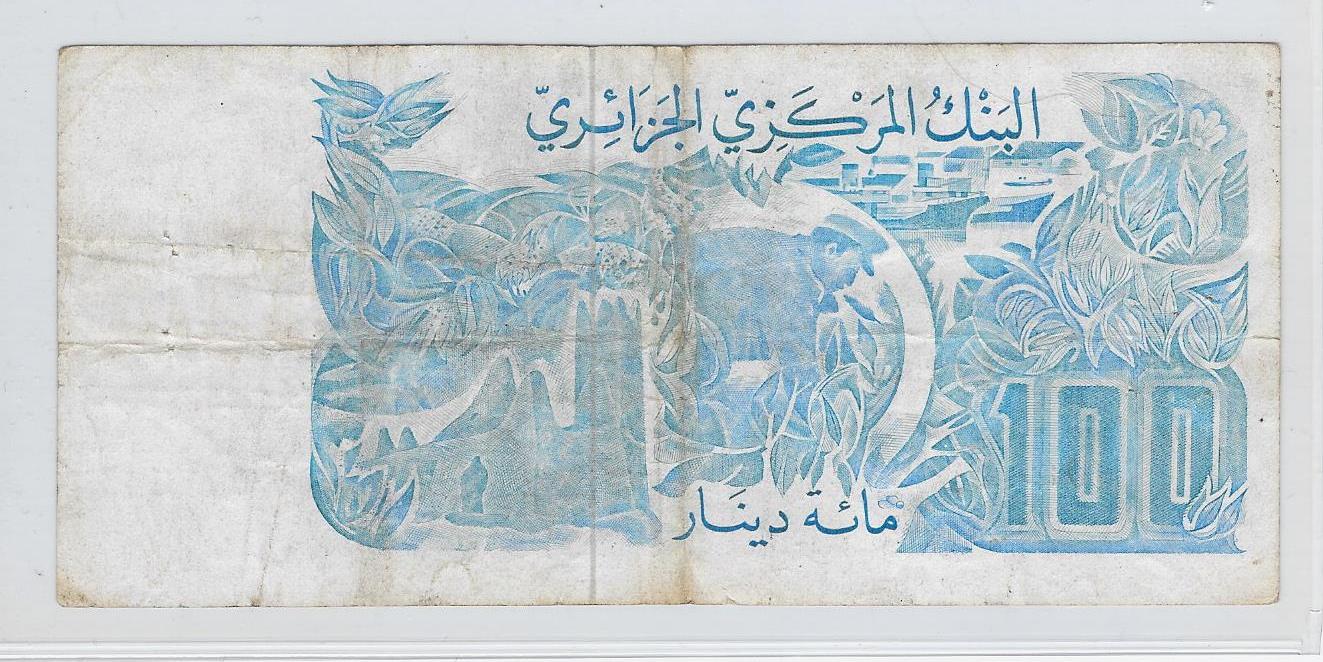 البَنْكُ المَرْكَزِيّ الجَزَائِريّ
100
مائة دينَار